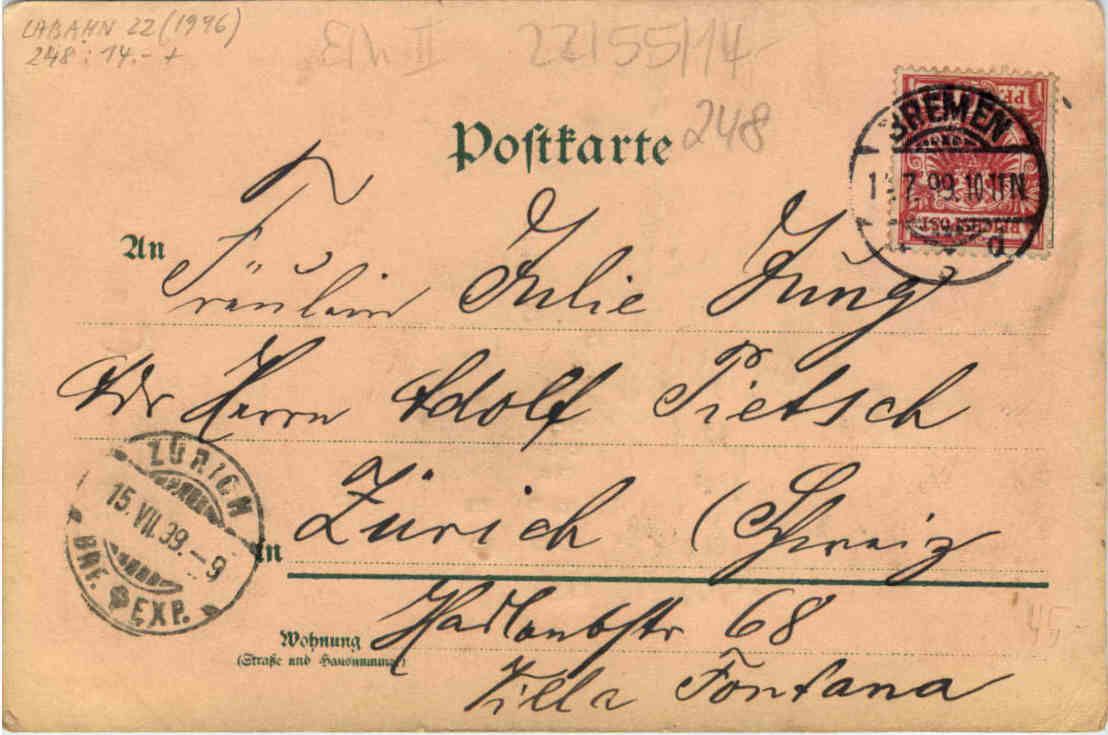 LABAHN 22 (1996)
248 : 14.- +
22/55/14.-
248
Postkarte
PF
BREMEN
7. 99. 10-11 N
REICHSPOST
d
An
Fräulein Julie Jung
Adr Herrn Adolf Pietsch
ZÜRICH
15. VII. 99. - 9
BRF. EXP.
Zürich (Schweiz
in
Hadlaubstr 68
Wohnung
(Straße und Hausnummer)
Villa Fontana
45.-